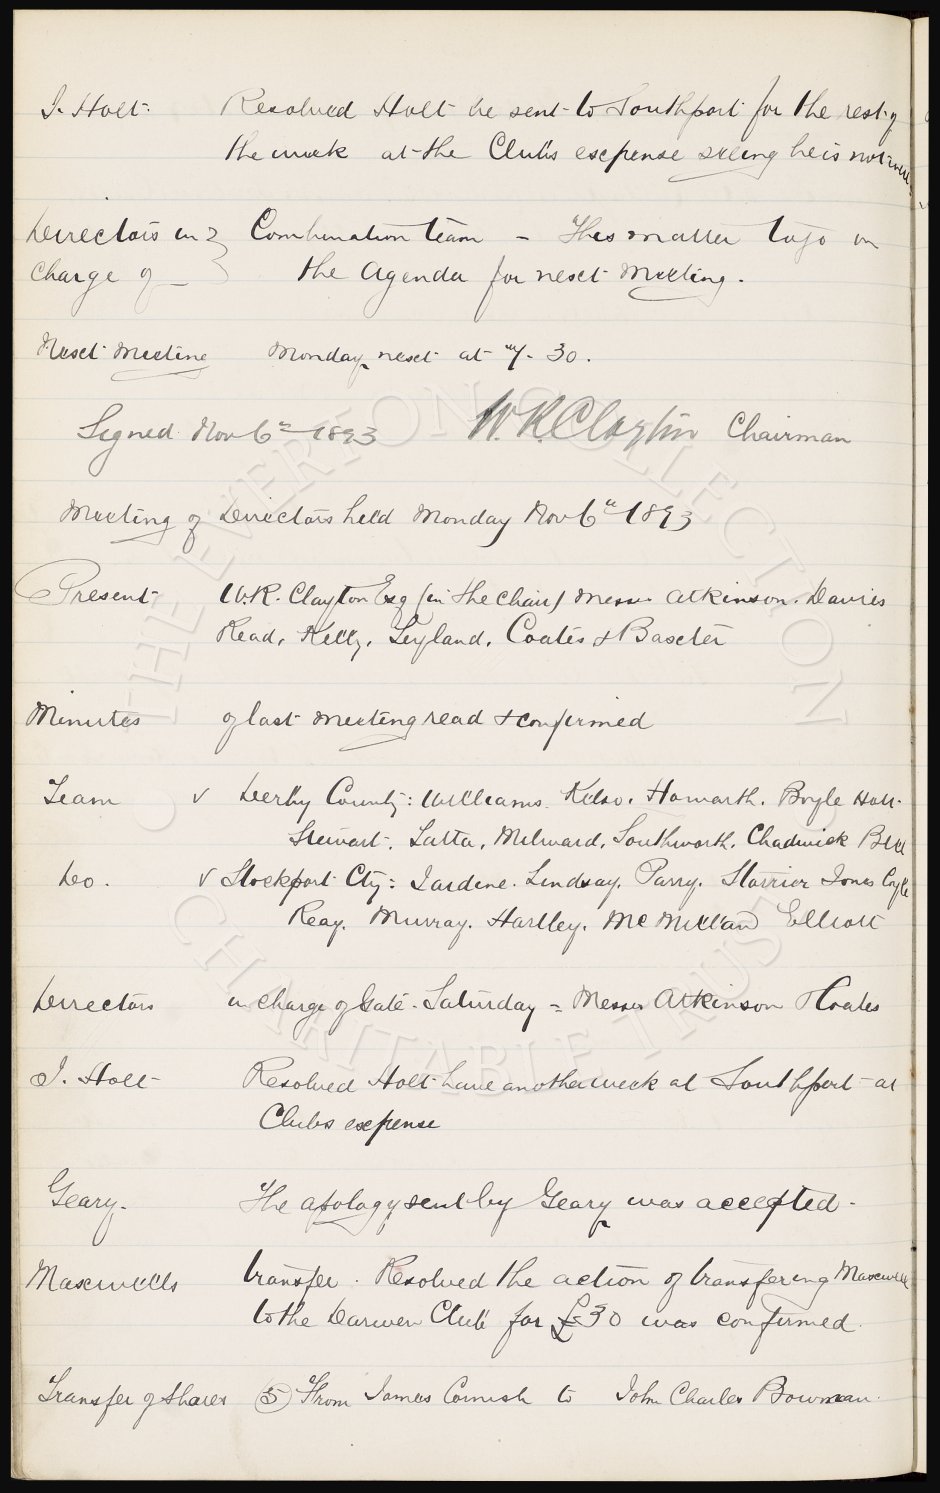 J. Holt. Resolved Holt be sent to Southport for the rest of
the week at the Clubs expense seeing he is not well.
Directors in } Combination team – This matter to go on
charge of – } the Agenda for next Meeting.
Next Meeting Monday next at 7-30.
Signed Nov 6th 1893 W.R. Clayton Chairman
Meeting of Directors held Monday Nov 6th 1893
Present W.R. Clayton Esq (in the Chair) Messrs Atkinson. Davies
Read, Kelly, Leyland, Coates & Baxter
Minutes of last meeting read & confirmed
Team v Derby County: Williams. Kelso. Howarth. Boyle Holt.
Stewart. Latta. Milward, Southworth. Chadwick Bell
Do. v Stockport Cty: Jardine. Lindsay. Parry. Storrier Jones Coyle
Reay. Murray. Hartley. McMillan Elliott
Directors in charge of Gate. Saturday = Messrs Atkinson & Coates
J. Holt Resolved Holt have another week at Southport at
Clubs expense
Geary. The apology sent by Geary was accepted.
Maxwells transfer. Resolved the action of transfering Maxwell
to the Darwen Club for £30 was confirmed.
Transfer of Shares (5) From James Cornish to John Charles Bowman.
THE EVERTON COLLECTION
CHARITABLE TRUST